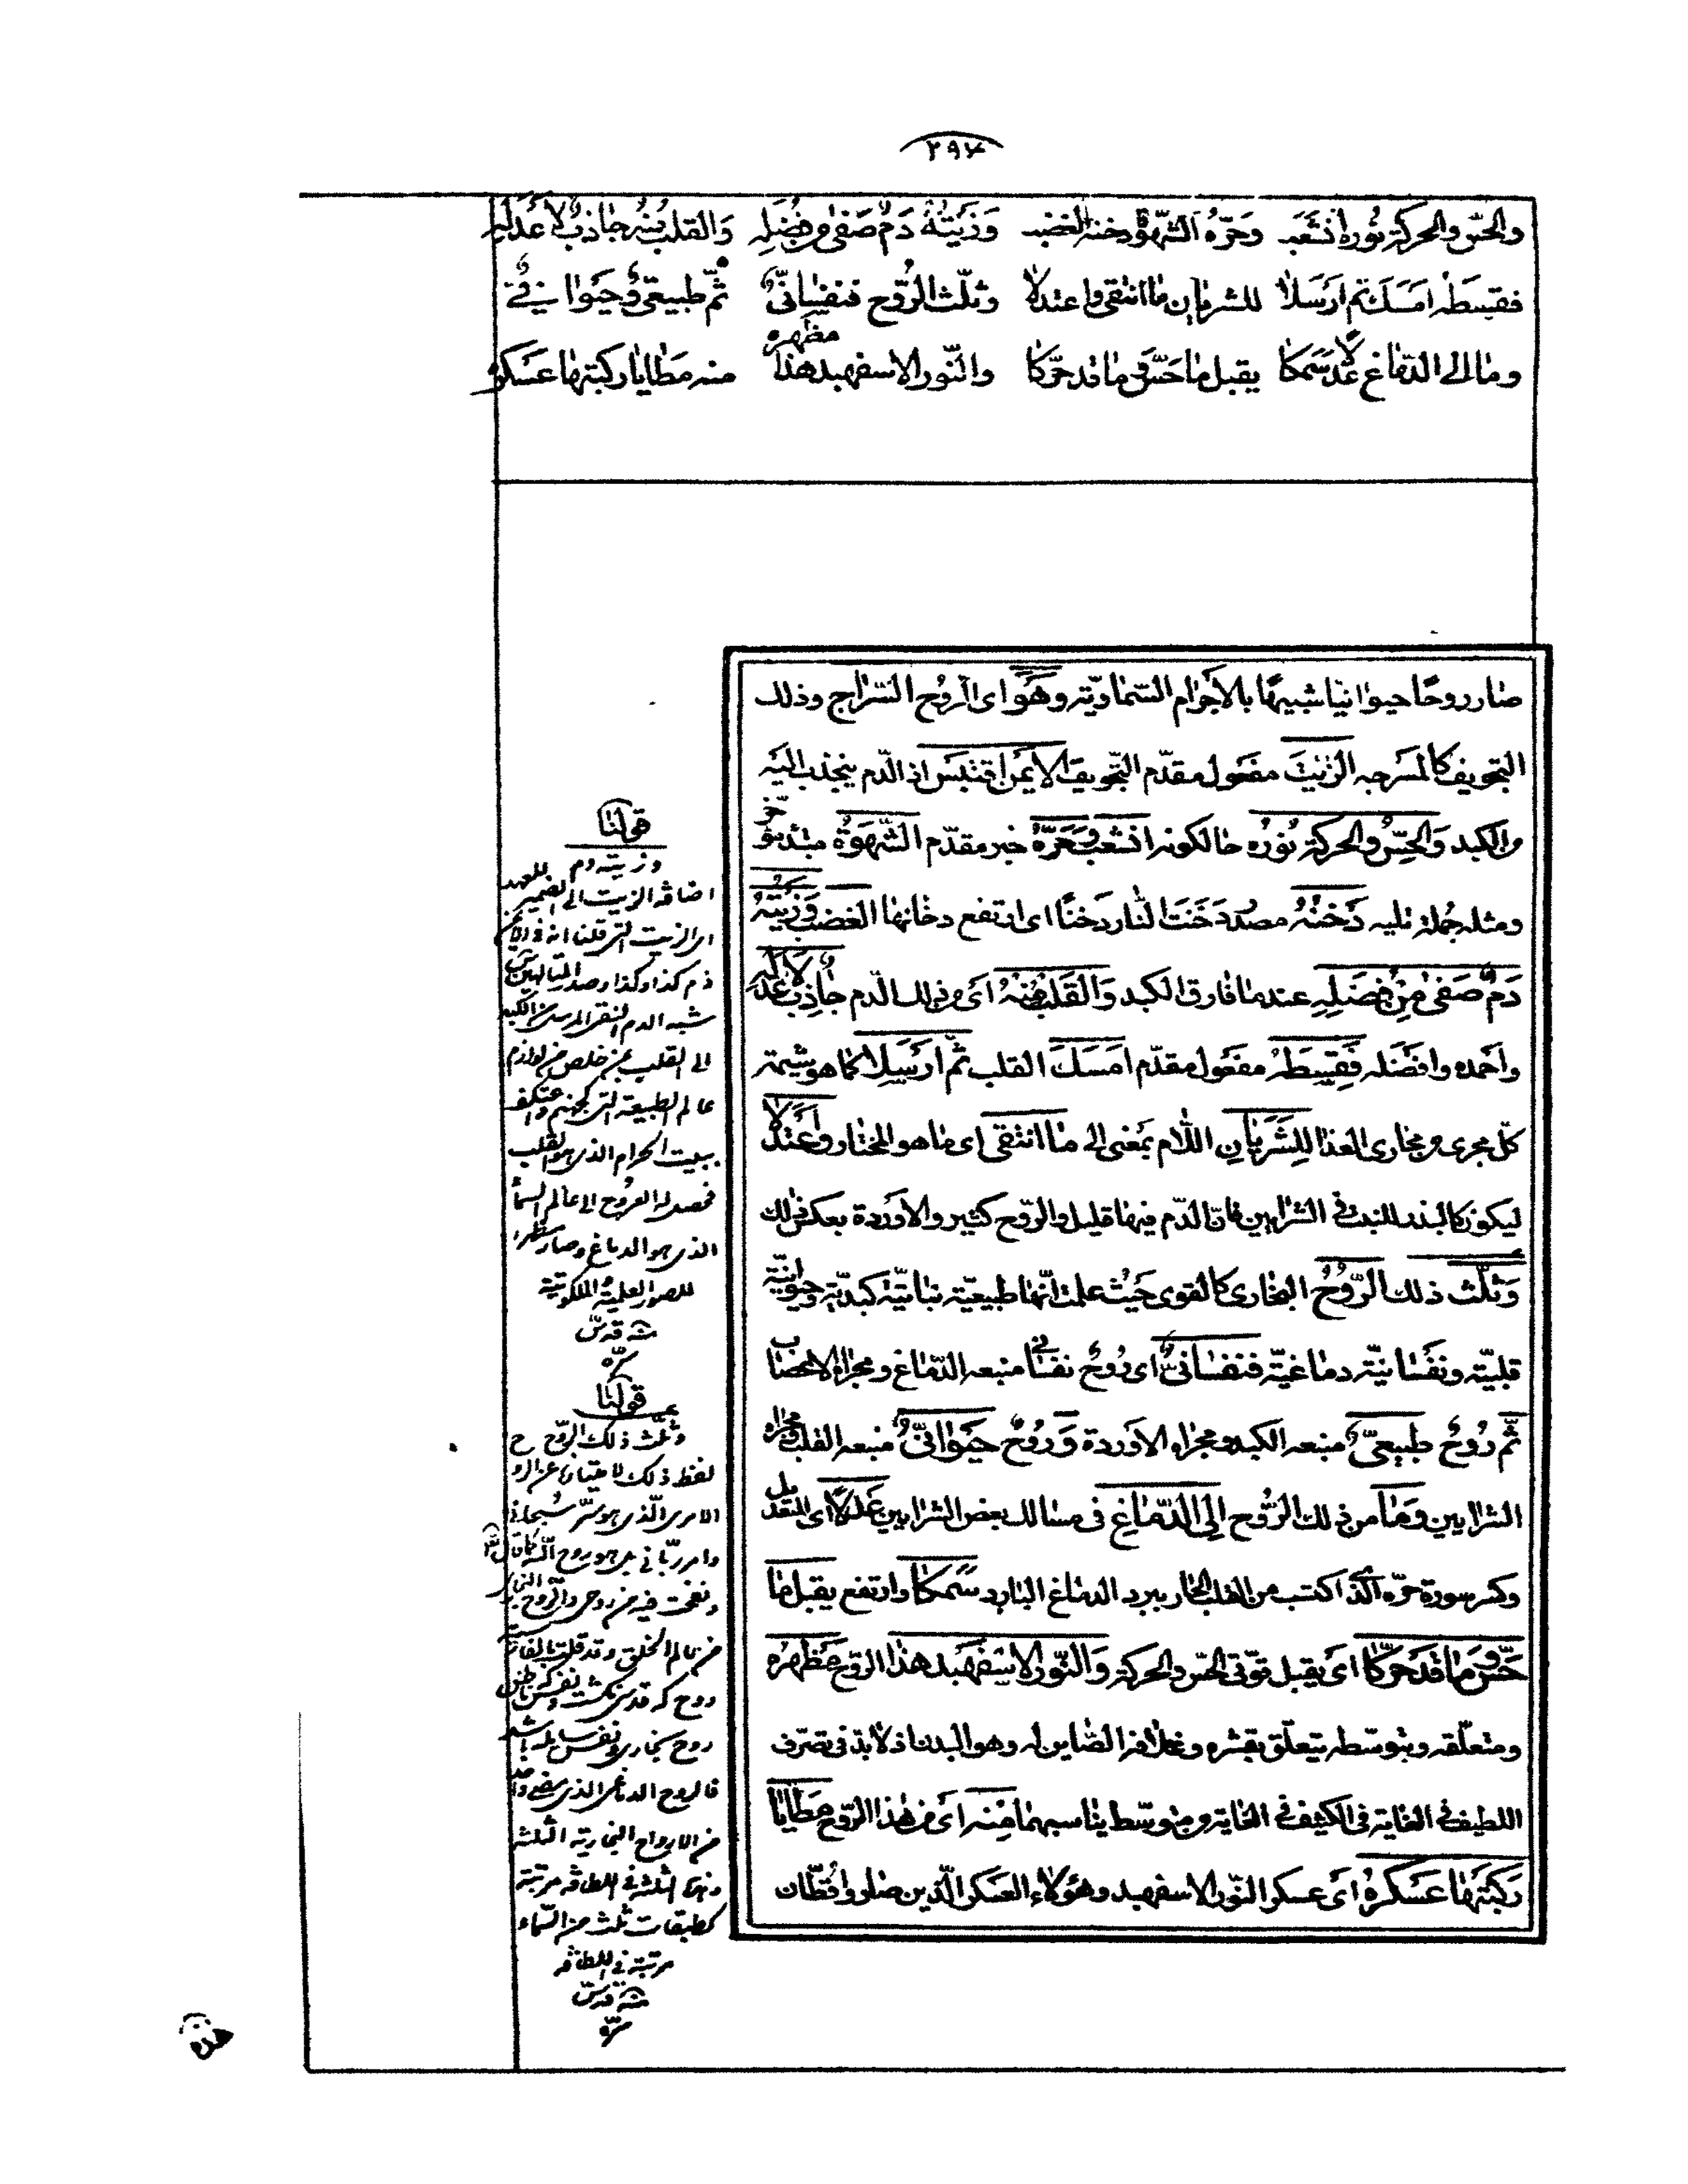 ۲۹۷
والحس والحركة نوره انشعب وحره الشهوة دخنه الغضب وزيته دم صفى من فضله والقلب منه جاذب لأعدله
فقسطه امسك ثم ارسلا للشريان ما انتقى واعتدلا وثلث الروح فنفساني ثم طبيعي وحيواني
وما الى الدماغ عدلا سمكا يقبل ما حس وما قد حركا والنور الاسفهبد هذا مظهره منه مطايا ركبتها عسكره
صار روحا حيوانيا شبيها بالاجرام السماوية وهو اى الروح السراج وذلك
التجويف كالمسرجه الزيت مفعول مقدم التجويف الايمن اقتبس اذ الدم ينجذب اليه
من الكبد والحس والحركة نوره حالكونه انشعب وحره خبر مقدم الشهوة مبتدء مؤخر
ومثله جملة تليه دخنه مصدر دخنت النار دخنا اى ارتفع دخانها الغضب وزيته
دم صفى من فضله عند ما فارق الكبد والقلب منه اى من ذلك الدم جاذب لأعدله
واحمده وافضله فقسطه مفعول مقدم امسك القلب ثم ارسلا كما هو شيمة
كل مجرى من مجارى الغذا للشريان اللام بمعنى الى ما انتقى اى ما هو المختار واعتدلا
ليكون كالبذر للنبت فى الشرايين فان الدم فيها قليل والروح كثير والاوردة بعكس ذلك
وثلث ذلك الروح البخارى كالقوى حيث علمت انها طبيعية نباتية كبدية وحيوانية
قلبية ونفسانية دماغية فنفسانى اى روح نفسانى منبعه الدماغ ومجراه الاعصاب
ثم روح طبيعى منبعه الكبد ومجراه الاوردة وروح حيوانى منبعه القلب ومجراه
الشرايين وما من ذلك الروح الى الدماغ فى مسالك بعض الشرايين عدلا اى التعديل
وكسر سورة حره الذى اكتسب من القلب الحار ببرد الدماغ البارد سمكا وارتفع يقبل ما
حس وما قد حركا اى يقبل قوتى الحس والحركة والنور الاسفهبد هذا الروح مظهره
ومتعلقه وبتوسطه يتعلق بقشره وغلافه الصاين له وهو البدن اذ لا بد فى تصرف
اللطيف فى الغاية فى الكثيف فى الغاية من متوسط يناسبهما منه اى من هذا الروح مطايا
ركبتها عسكره اى عسكر النور الاسفهبد وهؤلاء العسكر الذين صاروا قطان
قولنا
وزيته دم
اضافة الزيت الى الضمير للعهد
اى الزيت التى قلنا انه فى الايمن
دم كذا وكذا وصدر المتالهين
شبه الدم النقى المرسل من الكبد
الى القلب بمن خلص من لوازم
عالم الطبيعة التى كجهنم واعتكف
ببيت الحرام الذى هو القلب
فحصل له العروج الى عالم السماء
الذى هو الدماغ وصار مظهرا
للصور العلمية الملكوتية
منه قدس
سره
قولنا
وثلث ذلك الروح
لفظ ذلك عن الروح
الامرى الذى هو سر سبحانى
وامر ربانى بل هو روح الله كما قال
ونفخت فيه من روحى والروح البخارى
من عالم الخلق وقد قلت بالفارسية
روح كه قدسى نكشت ونفس كه ناطق
روح بخارى ونفس سايله باشد
فالروح الدماغى الذى هو واحد
من الارواح البخارية الثلثة
وهى الثلثة فى اللطافة مرتبة
كطبقات ثلث من السماء
مرتبة فى اللطافة
منه قدس
سره